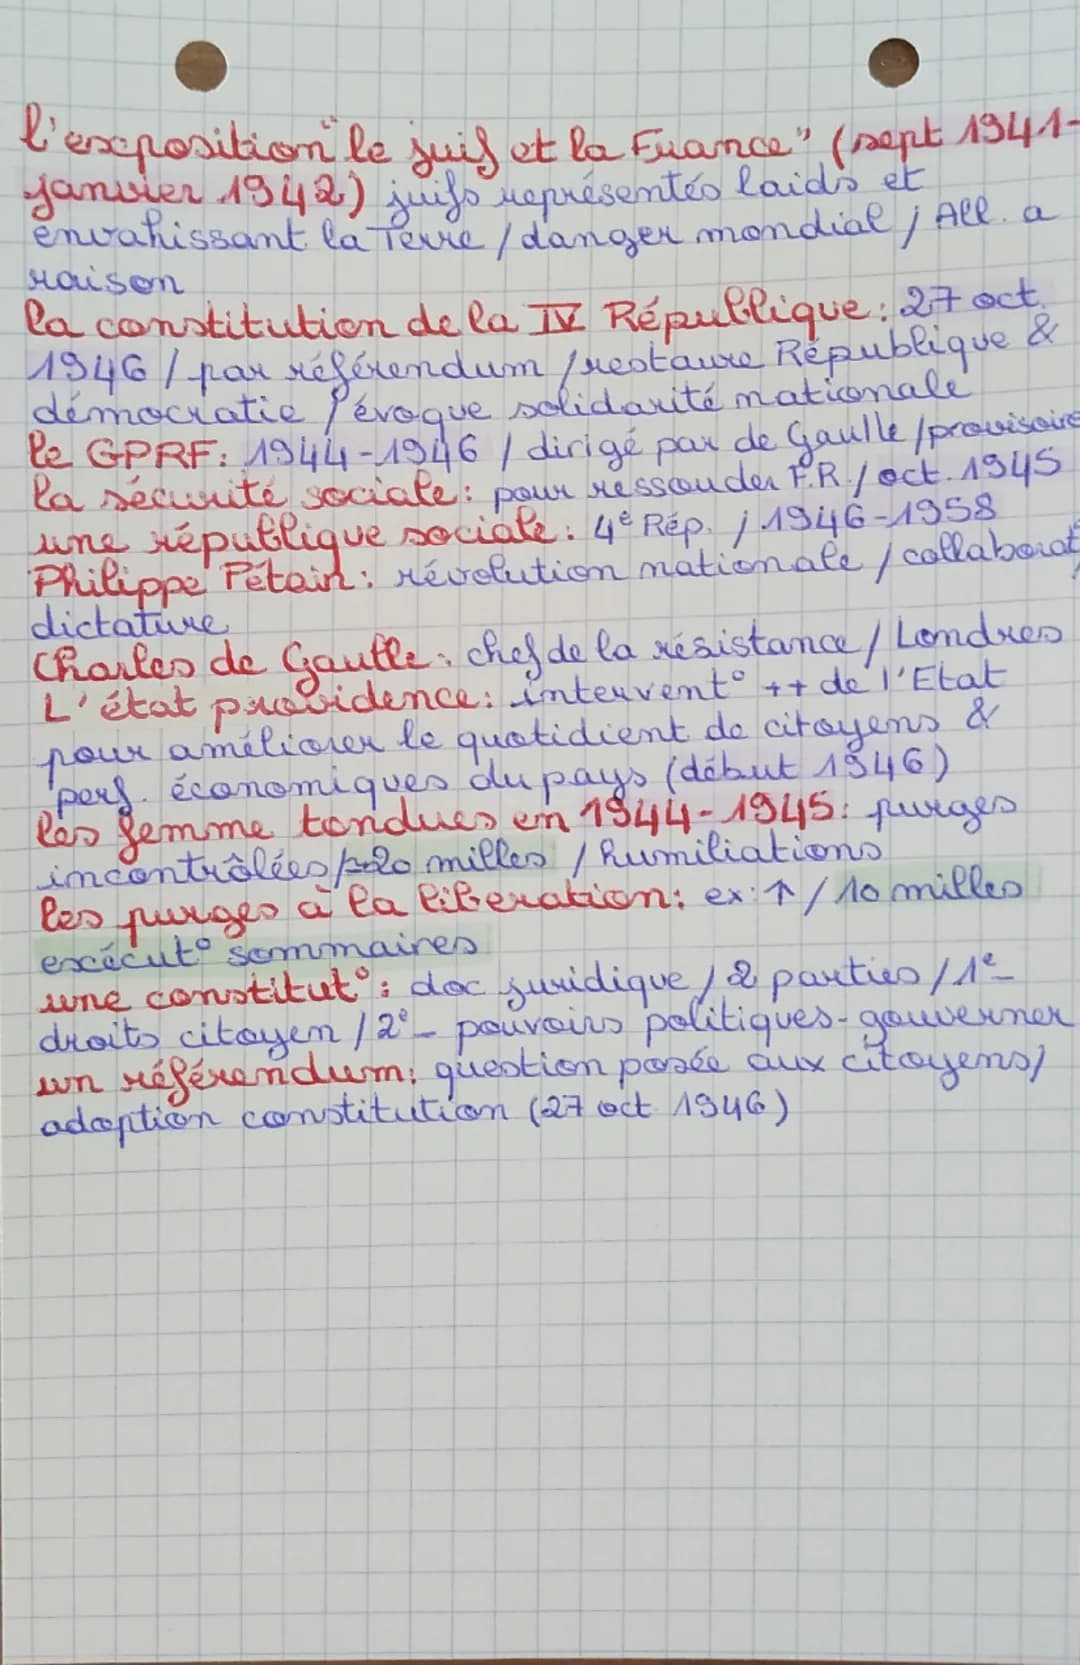 l'exposition "le juif et la France" (sept 1941-
janvier 1942) juifs représentés laids et
envahissant la Terre / danger mondial / All. a
raison
la constitution de la IV République : 27 oct.
1946 / par référendum / restaure République &
démocratie / évoque solidarité nationale
le GPRF : 1944-1946 / dirigé par de Gaulle / provisoire
la sécurité sociale : pour ressouder F.R. / oct. 1945
une république sociale : 4e Rép. / 1946-1958
Philippe Pétain : révolution nationale / collaborat°
dictature
Charles de Gaulle : chef de la résistance / Londres
L'état providence : intervent° ++ de l'Etat
pour améliorer le quotidient de citoyens &
perf. économiques du pays (début 1946)
les femme tondues en 1944-1945 : purges
incontrôlées / 20 milles / humiliations
les purges à la libération : ex : ↑ / 10 milles
exécut° sommaires
une constitut° : doc juridique / 2 parties / 1e-
droits citoyen / 2°- pouvoirs politiques-gouverner
un référendum : question posée aux citoyens /
adoption constitution (27 oct 1946)